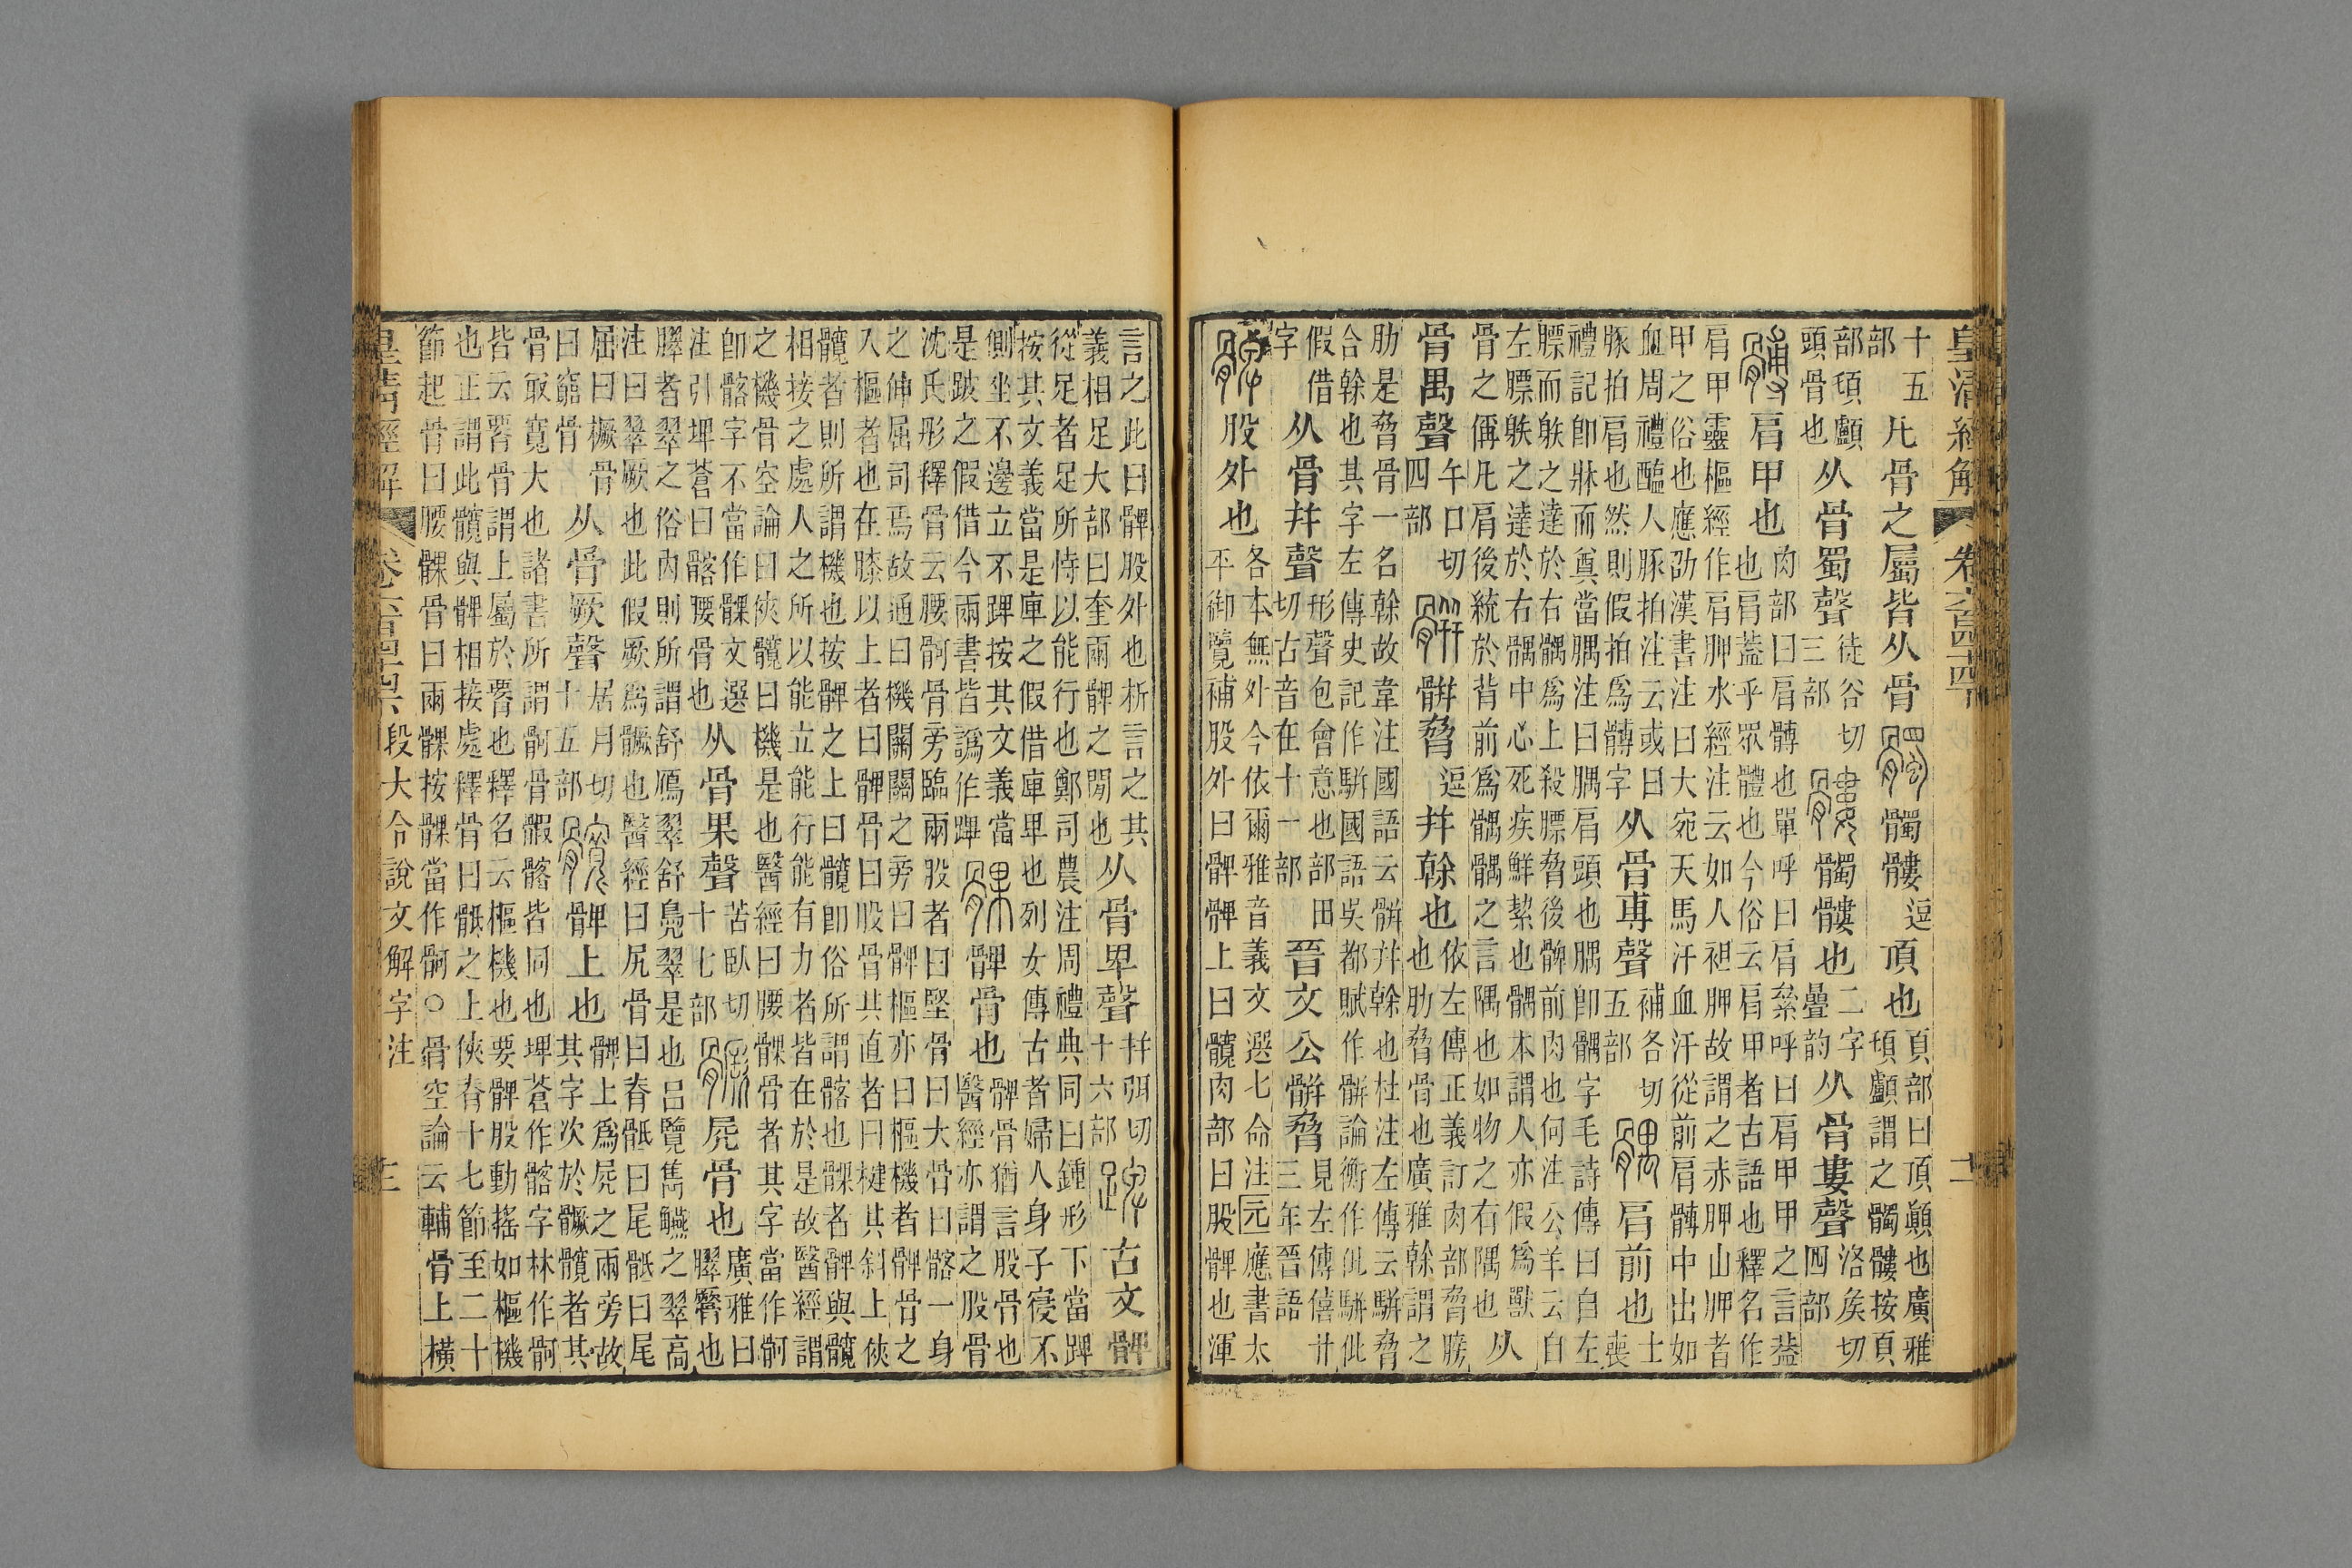 皇清經解 卷六百四十四 二
十五
部
凡骨之屬皆从骨
髑髏
逗
頂也
頁部曰頂顚也廣雅
頊顱謂之髑髏按頁
部頊顱
頭骨也
从骨蜀聲
徒谷切
三部
髑髏也
二字
疊韵
从骨婁聲
洛矦切
四部
肩甲也
肉部曰肩髆也單呼曰肩絫呼曰肩甲甲之言葢
也肩蓋乎眾體也今俗云肩甲者古語也釋名作
肩甲靈樞經作肩胛水經注云如人袒胛故謂之赤胛山胛者
甲之俗也應劭漢書注曰大宛天馬汗血汗從前肩髆中出如
血周禮醢人豚拍注云或曰
豚拍肩也然則假拍爲髆字
从骨尃聲
補各切
五部
肩前也
士
喪
禮記卽牀而奠當腢注曰腢肩頭也腢卽髃字毛詩傳曰自左
膘而䠶之達於右髃爲上殺膘脅後髀前肉也何注公羊云自
左膘䠶之達於右髃中心死疾鮮絜也髃本謂人亦假爲獸
骨之偁凡肩後統於背前爲髃髃之言隅也如物之右隅也
从
骨禺聲
午口切
四部
骿脅
逗
幷榦也
依左傳正義訂肉部脅膀
也肋脅骨也廣雅榦謂之
肋是脅骨一名榦故韋注國語云骿幷榦也杜注左傳云駢脅
合榦也其字左傳史記作駢國語吳都賦作骿論衡作仳駢仳
假借
字
从骨幷聲
形聲包會意也部田
切古音在十一部
晉文公骿脅
見左傳僖廿
三年晉語
股外也
各本無外今依爾雅音義文選七命注元應書太
平御覽補股外曰髀髀上曰髖肉部曰股髀也渾
言之此曰髀股外也析言之其
義相足大部曰奎兩髀之閒也
从骨卑聲
幷弭切
十六部
古文髀
從足者足所恃以能行也鄭司農注周禮典同曰鍾形下當踔
按其文義當是庳之假借庳卑也列女傳古者婦人身子寢不
側坐不邊立不踔按其文義當
是跛之假借今兩書皆譌作蹕
髀骨也
髀骨猶言股骨也
醫經亦謂之股骨
沈氏彤釋骨云腰䯊骨旁臨兩股者曰堅骨曰大骨曰髂一身
之伸屈司焉故通曰機關關之旁曰髀樞亦曰樞機者髀骨之
入樞者也在膝以上者曰髀骨曰股骨其直者曰楗其斜上俠
髖者則所謂機也按髀之上曰髖卽俗所謂髂也髁者髀與髖
相接之處人之所以能立能行能有力者皆在於是故醫經謂
之機骨空論曰俠髖曰機是也醫經曰腰髁骨者其字當作䯊
卽髂字不當作髁文選
注引埤蒼曰髂腰骨也
从骨果聲
苦臥切
十七部
骨也
廣雅曰
臎也
臎者翠之俗內則所謂舒鴈翠舒鳧翠是也呂覽雋觾之翠高
注曰翠厥也此假厥爲也醫經曰尻骨曰脊骶曰尾骶曰尾
屈曰橛骨
曰窮骨
从骨厥聲
居月切
十五部
髀上也
髀上爲之兩旁故
其字次於髖者其
骨㝡寬大也諸書所謂䯊骨髂皆同也埤蒼作髂字林作䯊
皆云骨謂上屬於也釋名云樞機也要髀股動搖如樞機
也正謂此髖與髀相接處釋骨曰骶之上俠脊十七節至二十
節起骨曰腰髁骨曰兩髁按髁當作䯊○骨空論云輔骨上橫
皇清經解 段大令說文解字注 三